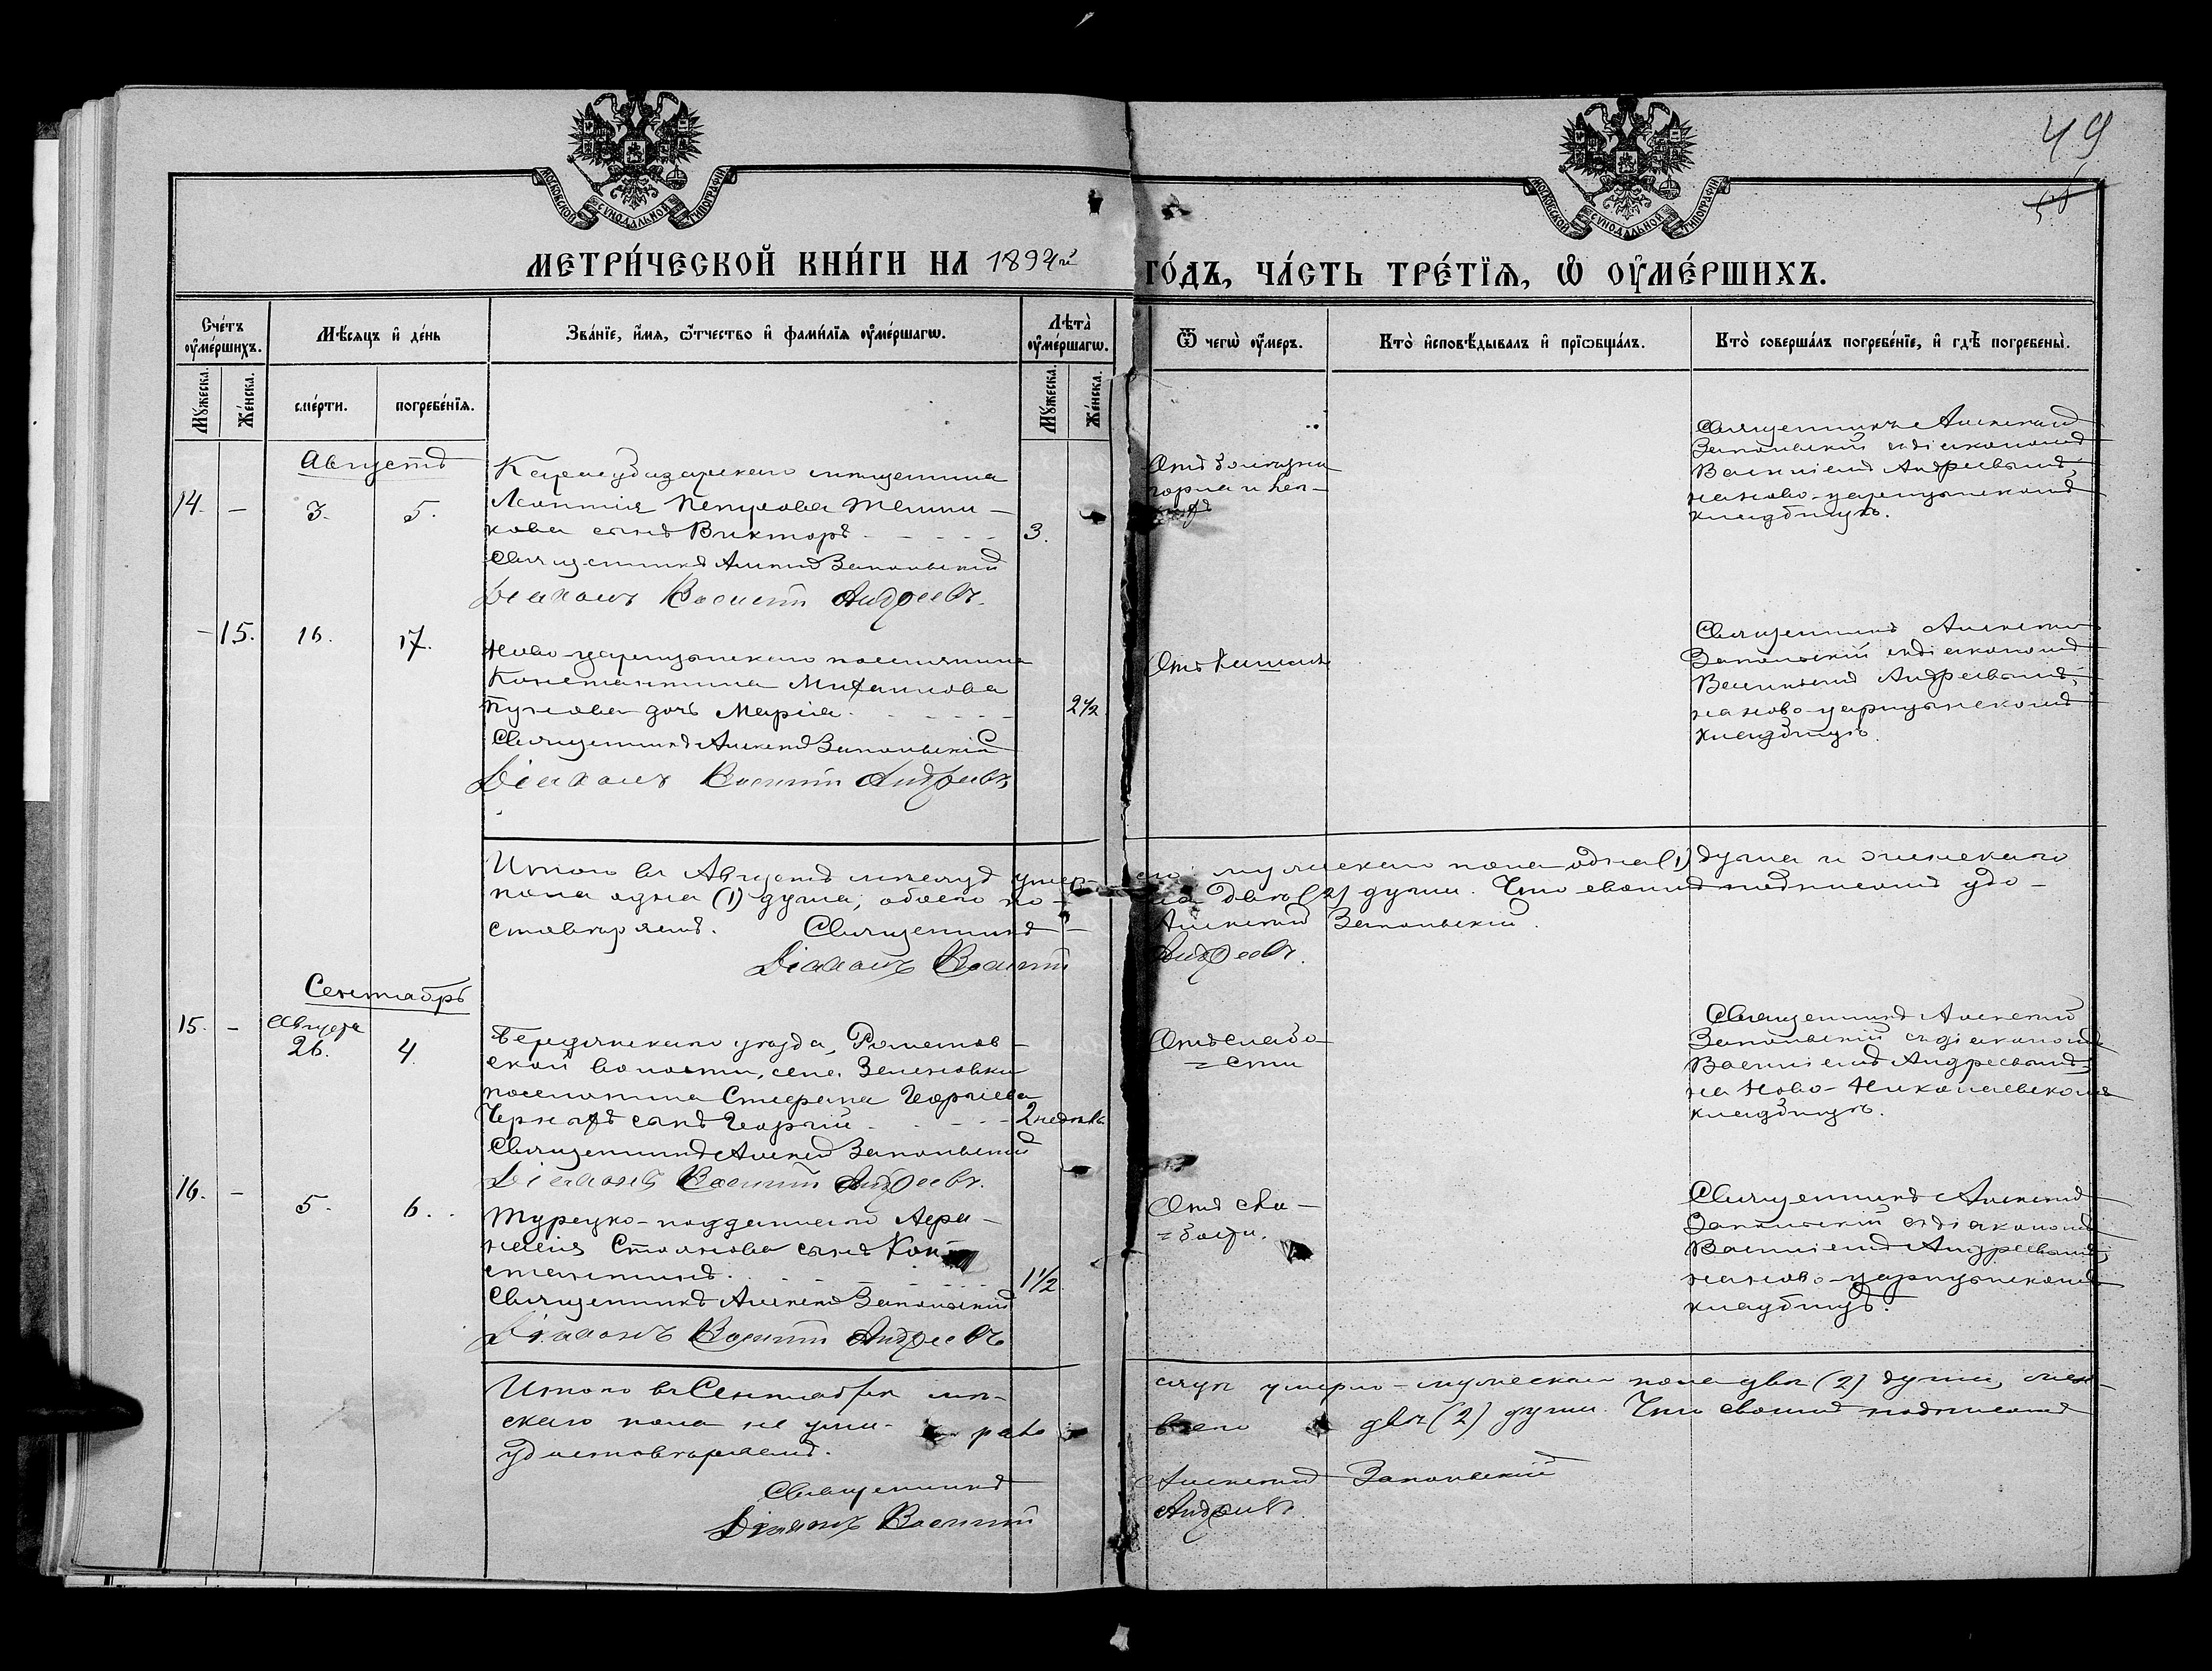 49
МОСКОВСКОЙ СѴНОДАЛЬНОЙ ТИПОГРАФІИ
МОСКОВСКОЙ СѴНОДАЛЬНОЙ ТИПОГРАФІИ
МЕТРИ́ЧЕСКОЙ КНИ́ГИ НА 1894й ГО́ДЪ, ЧА́СТЬ ТРЕ́ТІѦ, Ѡ ОУМЕ́РШИХЪ.
Сче́тъ оуме́ршихъ.
Мѣ́сяцъ и де́нь
Зва́ніе, и́мя, ѻ́тчество и фами́лія оуме́ршагѡ.
Лѣта̀ оуме́ршагѡ.
Ѿ чегѡ̀ оу́меръ.
Кто̀ исповѣ́дывалъ и пріѡбща́лъ.
Кто̀ соверша́лъ погребе́ніе, и гдѣ̀ погребены̀.
Му́жеска.
Же́нска.
сме́рти.
погребе́нія.
Му́жеска.
Же́нска.
Августъ
14. – 3. 5.
Карасубазарскаго мѣщанина
Леонтія Петрова
кова сынъ Викторъ 3.
Священникъ Алексій Запольскій
Діаконъ Василій Андреевъ.
Отъ
горла и
Священникъ Алексій
Запольскій съ діакономъ
Василіемъ Андреевымъ,
на ново-царицынскомъ
кладбищѣ.
– 15. 16. 17.
Ново-царицынскаго поселянина
Константина Михаилова
дочь Марія. 2 1/2
Священникъ Алексій Запольскій
Діаконъ Василій Андреевъ
Отъ кашля
Священникъ Алексій
Запольскій съ діакономъ
Василіемъ Андреевымъ,
на ново-царицынскомъ
кладбищѣ.
Итого въ Августѣ мѣсяцѣ умерло мужескаго пола одна (1) душа и женскаго
пола одна (1) душа; обоего пола двѣ (2) души. Что своимъ подписомъ удо-
стовѣряемъ. Священникъ Алексій Запольскій.
Діаконъ Василій Андреевъ.
Сентябрь
15. – Августа 26. 4.
Бердянскаго уѣзда,
ской волости, села Зеленовки
поселянина Стефана Георгіева
сынъ Георгій 2 недѣль
Священникъ Алексій Запольскій
Діаконъ Василій Андреевъ.
Отъ слабо-
=сти
Священникъ Алексій
Запольскій съ діакономъ
Василіемъ Андреевымъ,
на Ново-Николаевскомъ
кладбищѣ.
16. – 5. 6.
Турецко-подданнаго Аѳа-
насія Стоянова сынъ Кон-
стантинъ. 1 1/2
Священникъ Алексій Запольскій
Діаконъ Василій Андреевъ
Отъ сла-
=бости.
Священникъ Алексій
Запольскій съ діакономъ
Василіемъ Андреевымъ,
на ново-царицынскомъ
кладбищѣ.
Итого въ Сентябрѣ мѣ-сяцѣ умерло мужескаго пола двѣ (2) души, жен-
скаго пола не уми-рало всего двѣ (2) души. Что своимъ подписомъ
удостовѣряемъ.
Священникъ Алексій Запольскій
Діаконъ Василій Андреевъ